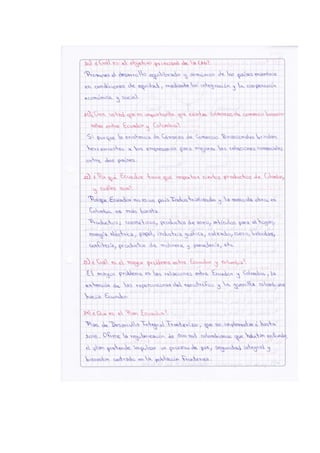 ¿Cuál es el objetivo principal de la CAN?
Promover el desarrollo equilibrado y armónico de los países miembros
en condiciones de equidad, mediante la integración y la cooperación
económica y social.
¿Cree usted que es importante que existan Cámaras de comercio
entre Ecuador y Colombia?
Si porque la existencia de Cámaras de Comercio Binacionales brindan
herramientas a los empresarios para mejorar las relaciones comerciales
entre dos países.
¿Por qué Ecuador tiene que importar ciertos productos de Colombia,
y cuáles son?
Porque Ecuador no es un país Industrializado y la mano de obra en
Colombia es más barata.
Productos: cosméticos, productos de aseo, artículos para el hogar,
energía eléctrica, papel, industria gráfica, calzado, cuero, bebidas,
confitería, productos de molinería y panadería, etc.
¿Cuál es el mayor problema entre Ecuador y Colombia?
El mayor problema en las relaciones entre Ecuador y Colombia, la
extensión de las repercusiones del narcotráfico y la guerrilla colombiana
hacia Ecuador.
¿Qué es el Plan Ecuador?
Plan de Desarrollo Integral Fronterizo, que se implementará hasta
Ofrece la regularización de 500 mil colombianos que habitan
el plan pretende impulsar un proceso de paz, seguridad integral y
bienestar centrado en la población fronteriza.